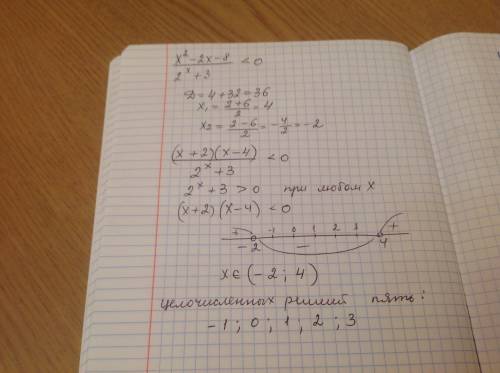 x² - 2x - 8 / 2ˣ + 3 < 0
D = 4 + 32 = 36
x₁ = 2+6 / 2 = 4
x₂ = 2-6 / 2 = -4/2 = -2
(x + 2)(x - 4) / 2ˣ + 3 < 0
2ˣ + 3 > 0 при любом x
(x + 2)(x - 4) < 0
+ -1 0 1 2 3 +
-2 — 4
x ∈ (-2 ; 4)
целочисленных решений пять:
-1 ; 0 ; 1 ; 2 ; 3